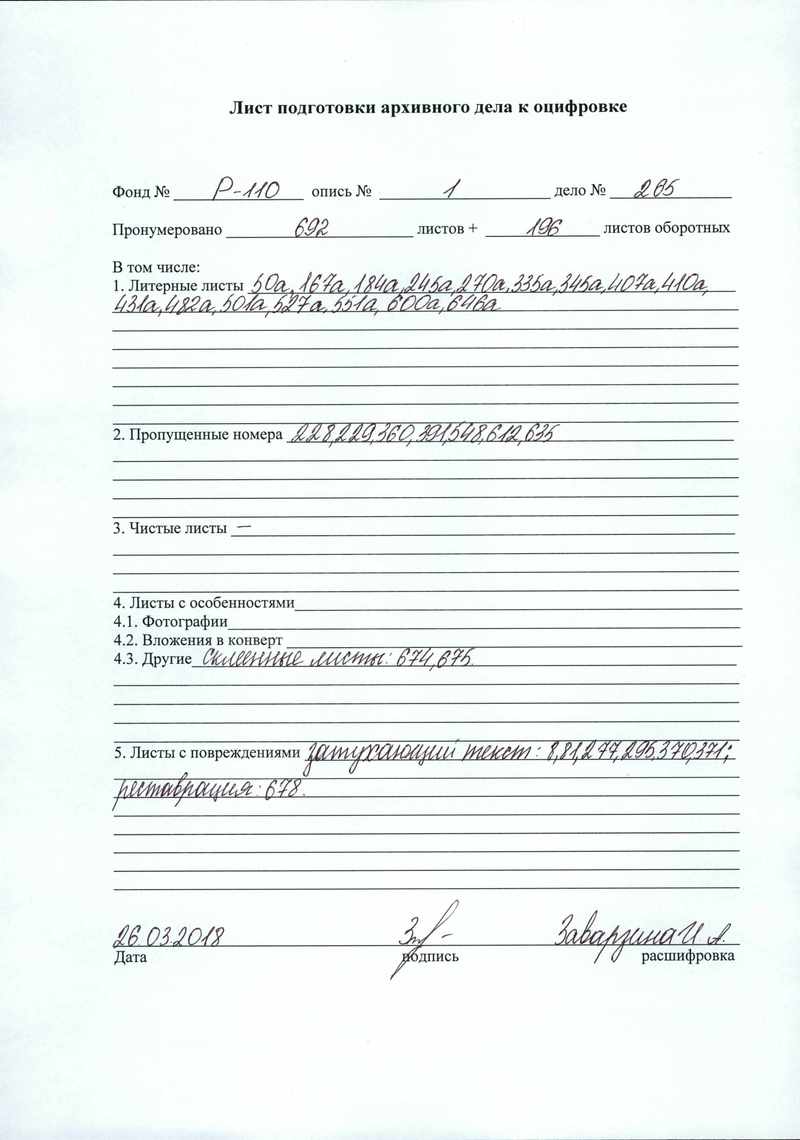 Лист подготовки архивного дела к оцифровке
Фонд № Р-110 опись № 1 дело № 265
Пронумеровано 692 листов + 196 листов оборотных
В том числе:
1. Литерные листы 50а, 167а, 184а, 245а, 270а, 335а, 345а, 407а, 410а,
431а, 482а, 501а, 527а, 551а, 600а, 646а.
2. Пропущенные номера 228, 229, 360, 391, 548, 612, 635
3. Чистые листы —
4. Листы с особенностями
4.1. Фотографии
4.2. Вложения в конверт
4.3. Другие Склеенные листы: 674, 675.
5. Листы с повреждениями затухающий текст: 8, 81, 277, 295, 370, 371;
реставрация: 678.
26.03.2018 Заварзина И. А.
Дата подпись расшифровка